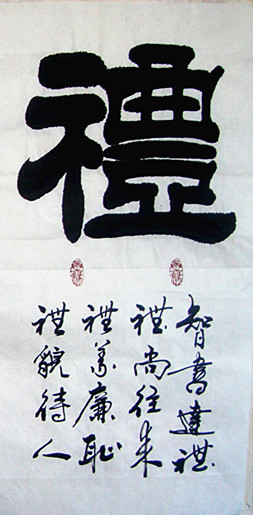 禮
智書達禮
禮尚往来
禮義廉恥
禮貌待人